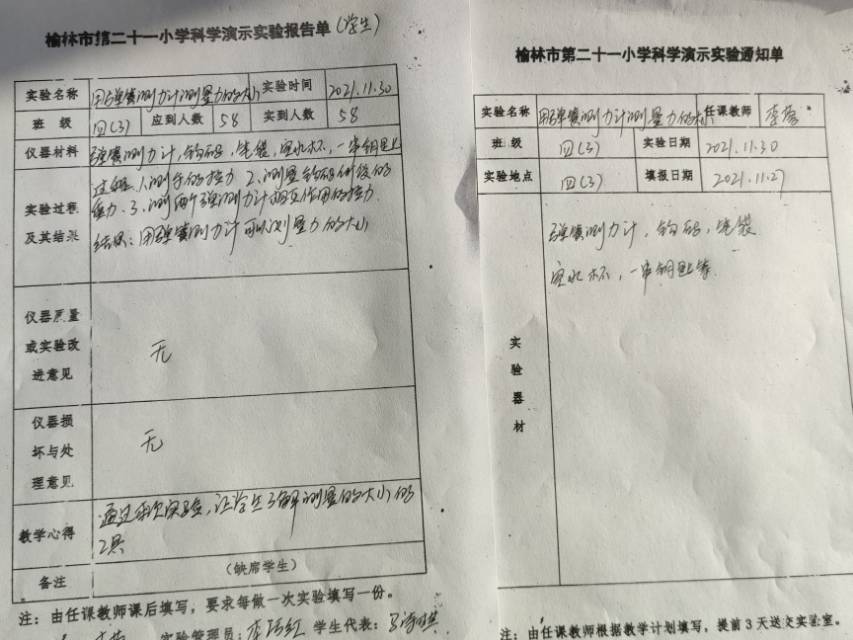 榆林市第二十一小学科学演示实验报告单(学生)
实验名称 用弹簧测力计测量力的大小 实验时间 2021.11.30
班 级 四(3) 应到人数 58 实到人数 58
仪器材料 弹簧测力计,钩码,笔袋,空水杯,一串钥匙
实验过程及其结果
过程:1.测手的拉力 2.测量钩码
力.3.测两个弹簧测力计相互作用的拉力.
结果:用弹簧测力计可以测量力的大小
仪器质量或实验改进意见 无
仪器损坏与处理意见 无
教学心得 通过本次实验,让学生了解测量的大小的
工具
备注 (缺席学生)
注:由任课教师课后填写,要求每做一次实验填写一份。
实验管理员: 学生代表:
榆林市第二十一小学科学演示实验通知单
实验名称 用弹簧测力计测量力的大小 任课教师
班 级 四(3) 实验日期 2021.11.30
实验地点 四(3) 填报日期 2021.11.27
实验器材
弹簧测力计,钩码,笔袋
空水杯,一串钥匙等.
注:由任课教师根据教学计划填写,提前3天送交实验室。